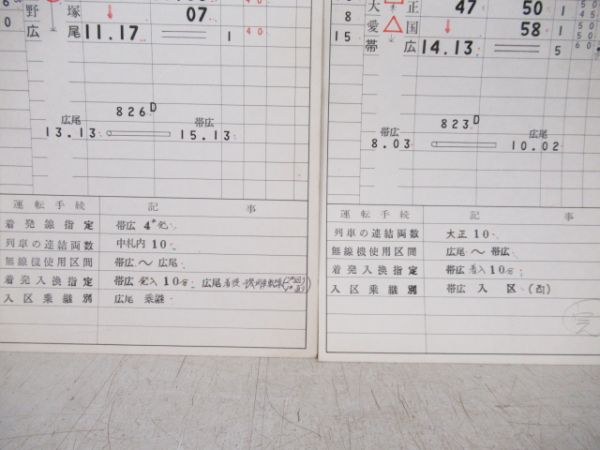 6
0
野 塚 07
広 尾 11.17 1 40
826D
広尾 帯広
13.13 15.13
運転手続 記 事
着発線指定 帯広 4#発
列車の連結両数 中札内 10
無線機使用区間 帯広 〜 広尾
着発入換指定 帯広 発入10分 広尾
入区乗継別 広尾 乗継
大 正 47 50 1 50
8 愛 国 58 1
15 帯 広 14.13 5 60
823D
帯広 広尾
8.03 10.02
運転手続 記 事
列車の連結両数 大正 10
無線機使用区間 広尾 〜 帯広
着発入換指定 帯広 着入10分
入区乗継別 帯広 入 区